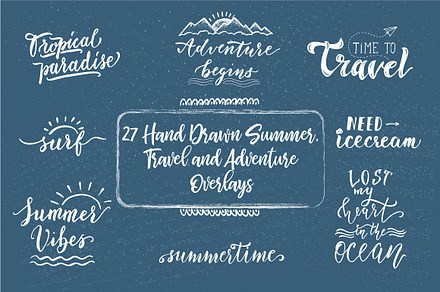 Tropical
paradise
Adventure
begins
TIME TO
Travel
surf
27 Hand Drawn Summer,
Travel and Adventure
Overlays
NEED
icecream
Summer
Vibes
summertime
LOST
my
heart
in the
OCEAN